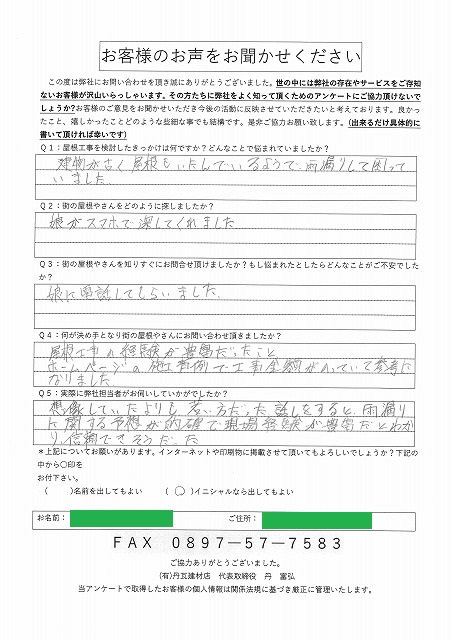 お客様のお声をお聞かせください
この度は弊社にお問い合わせを頂き誠にありがとうございました。世の中には弊社の存在やサービスをご存知
ないお客様が沢山いらっしゃいます。その方たちに弊社をよく知って頂くためのアンケートにご協力頂けないで
しょうか?お客様のご意見をお聞かせいただき今後の活動に反映させていただきたいと考えております。良かっ
たこと、嬉しかったことどのような些細な事でも結構です。是非ご協力お願い致します。(出来るだけ具体的に
書いて頂ければ幸いです)
Q1：屋根工事を検討したきっかけは何ですか？どんなことで悩まれていましたか？
建物が古く屋根もいたんでいるようで、雨漏りして困って
いました。
Q2：街の屋根やさんをどのように探しましたか？
娘がスマホで探してくれました
Q3：街の屋根やさんを知りすぐにお問合せ頂けましたか？もし悩まれたとしたらどんなことがご不安でした
か？
娘に電話してもらいました。
Q4：何が決め手となり街の屋根やさんにお問い合わせ頂きましたか？
屋根工事の経験が豊富だったこと
ホームページの施工事例で工事金額が入っていて参考に
なりました
Q5：実際に弊社担当者がお伺いしていかがでしたか？
想像していたよりも若い方だった 話しをすると、雨漏り
に関する予想が的確で現場経験が豊富だとわか
り、信頼できそうだった
＊上記についてお願いがあります。インターネットや印刷物に掲載させて頂いてもよろしいでしょうか？下記の
中から〇印を
お付下さい。
（　　）名前を出してもよい　　（ ○ ）イニシャルなら出してもよい
お名前：　　ご住所：
FAX 0897－57－7583
ご協力ありがとうございました。
(有)丹瓦建材店　代表取締役　丹　富弘
当アンケートで取得したお客様の個人情報は関係法規に基づき厳正に管理いたします。